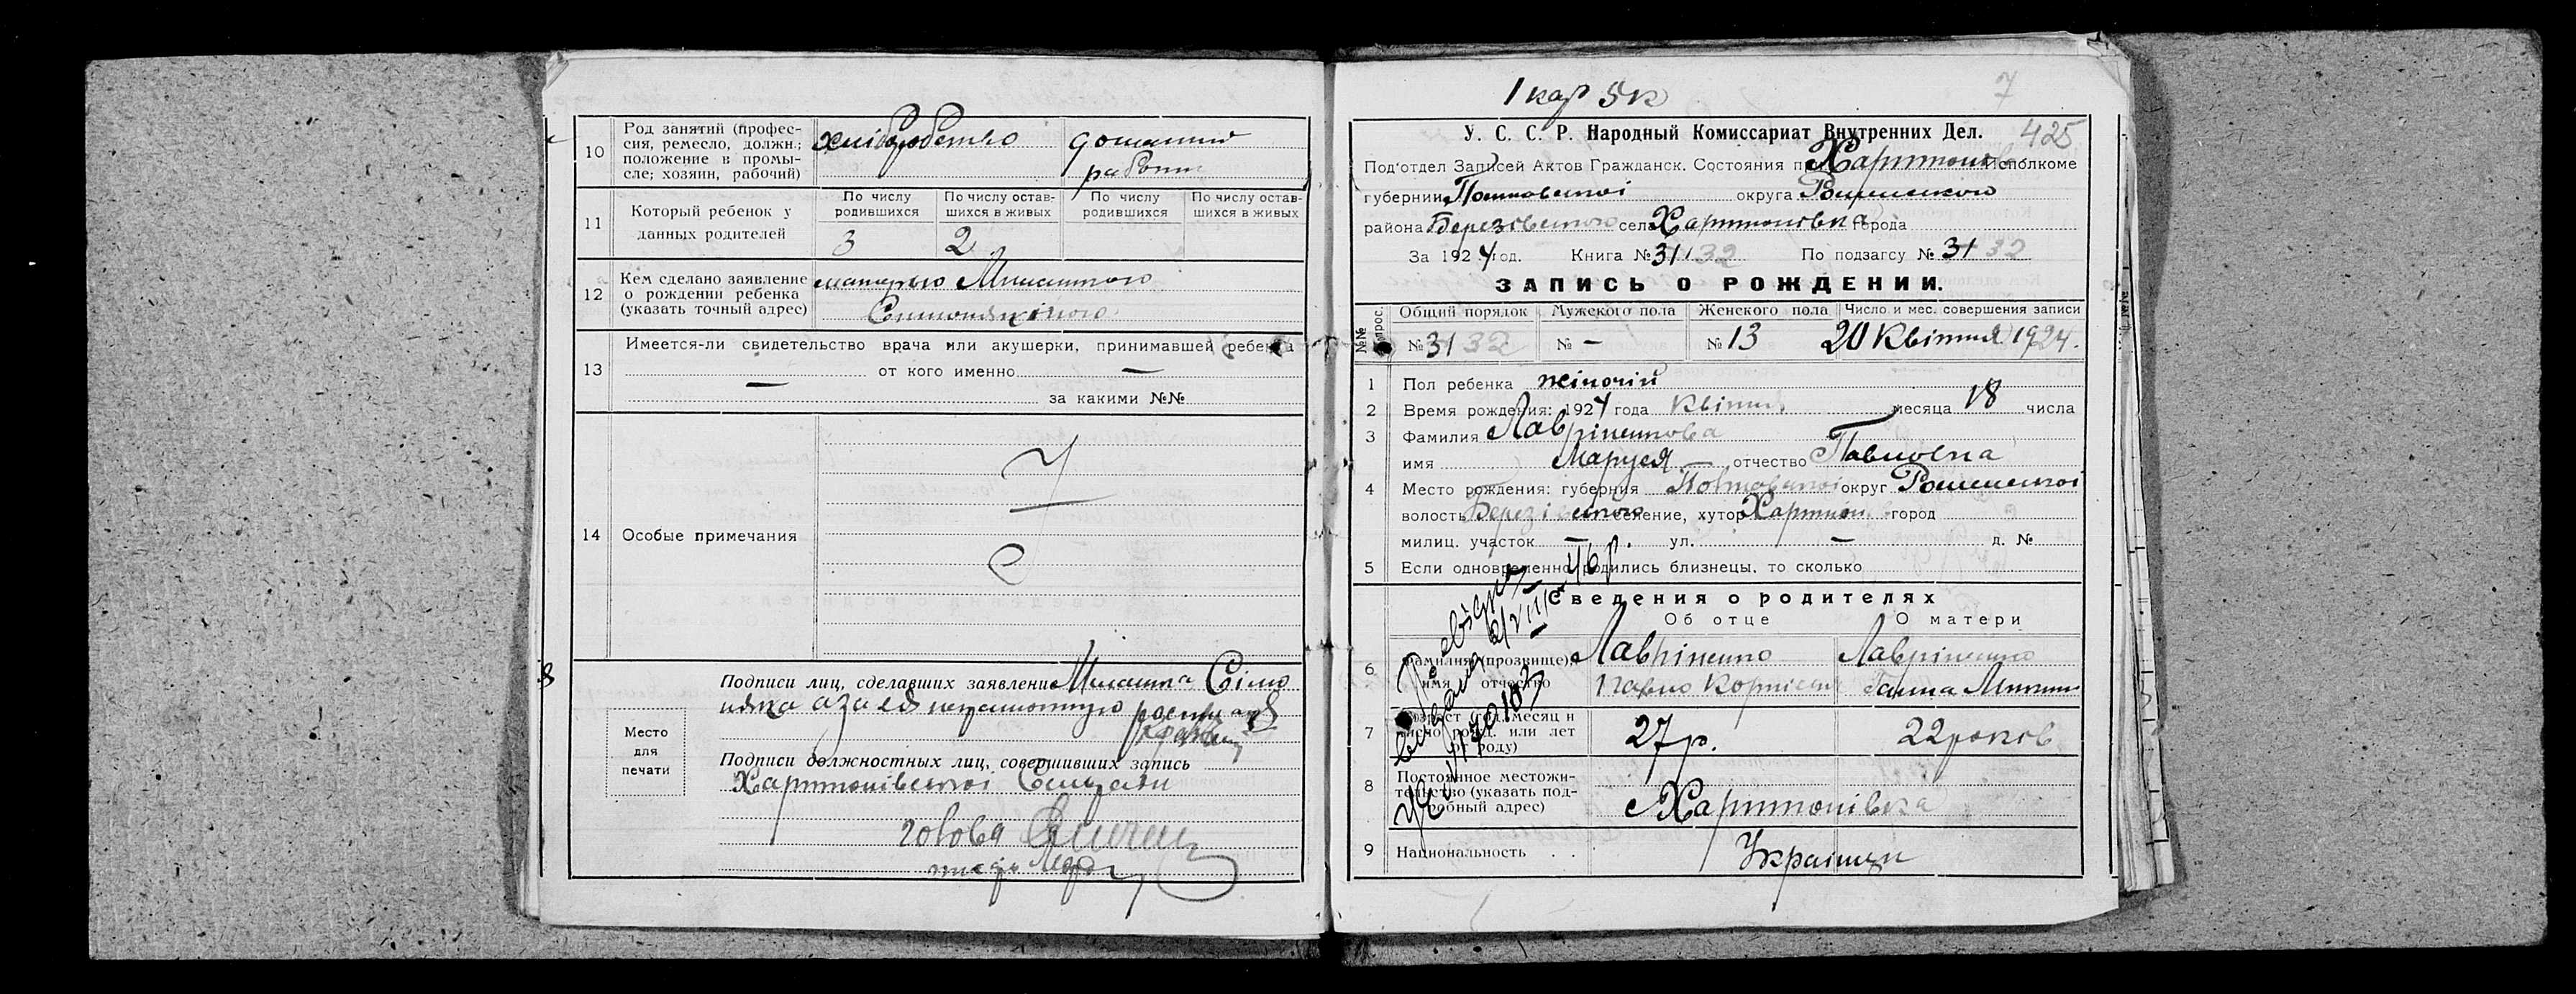 10 Род занятий (профес-
сия, ремесло, должн.;
положение в промы-
сле; хозяин, рабочий)
хліборобство
домашні
работи
11 Который ребенок у
данных родителей
По числу
родившихся
По числу остав-
шихся в живых
По числу
родившихся
По числу остав-
шихся в живых
3 2
12 Кем сделано заявление
о рождении ребенка
(указать точный адрес)
13 Имеется-ли свидетельство врача или акушерки, принимавшей ребенка
— от кого именно —
за какими №№
14 Особые примечания
Подписи лиц, сделавших заявление
Место
для
печати
Подписи должностных лиц, совершивших запись
Харитонівської Сельради
голова
1 кар 5к
7
425
У. С. С. Р. Народный Комиссариат Внутренних Дел.
Под'отдел Записей Актов Гражданск. Состояния при Харитонів Исполкоме
губернии Полтавської округа Роменського
района Березівського села Харитонівка города
За 1924 год. Книга № 31 32 По подзагсу № 31 32
ЗАПИСЬ О РОЖДЕНИИ.
№№ Общий порядок Мужского пола Женского пола Число и мес. совершения записи
№ 31 32 № — № 13 20 Квітня 1924.
1 Пол ребенка жіночий
2 Время рождения: 1924 года Квітня месяца 18 числа
3 Фамилия Лавріненкова
имя Маруся отчество Павловна
4 Место рождения: губерния Полтавської округ Роменської
волость Березівського селение, хутор Харитон. город
милиц. участок — ул. — д. №
5 Если одновременно родились близнецы, то сколько
Сведения о родителях
Об отце О матери
6 Фамилия (прозвище),
имя и отчество
Лавріненко Лавріненко
Павло Ганна
7 Возраст (год, месяц и
число рожд. или лет
от роду)
27 р. 22 років
8 Постоянное местожи-
тельство (указать под-
робный адрес)
с Харитонівка
9 Национальность . . Українці